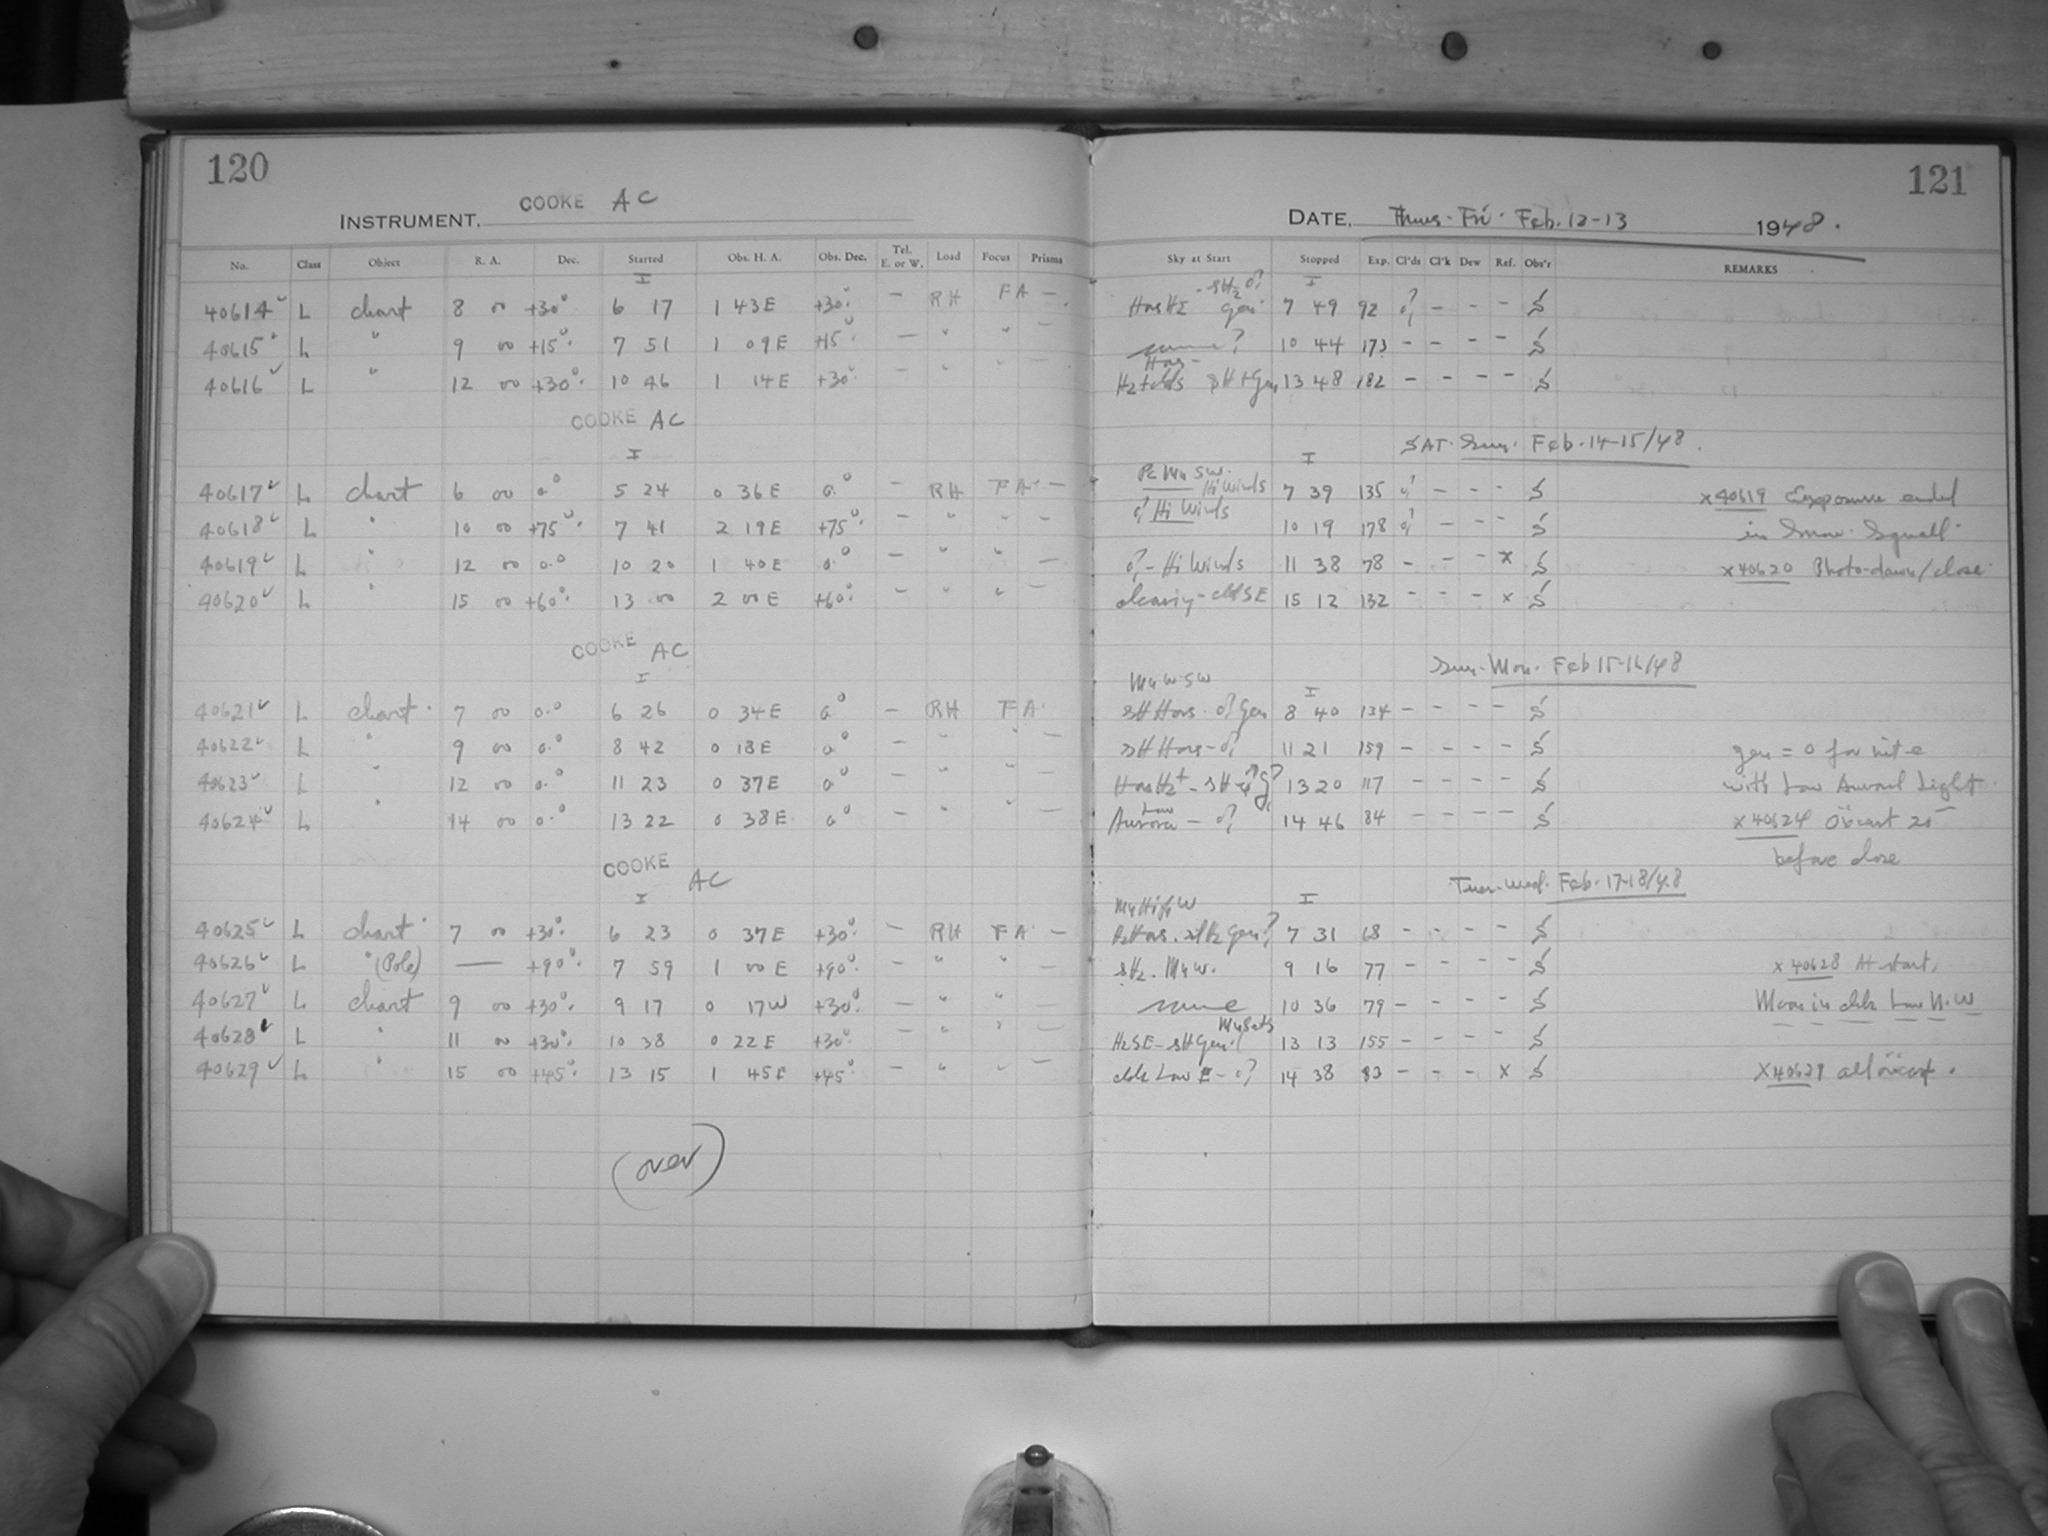 120
121
INSTRUMENT. COOKE AC
DATE. Thurs-Fri. Feb. 12-13 1948.
No. Class Object R. A. Dec. Started Obs. H. A. Obs. Dec. Tel. E. or W. Load Focus Prisms Sky at Start Stopped Exp. Cl'ds Cl'k Dew Ref. Obs'r REMARKS
40614 L chart 8 00 +30° 6 17 1 43E +30° — RH FA — 7 49 92 — - - S
40615 L " 9 00 +15° 7 51 1 09E +15° — " " — 10 44 173 - - - - S
40616 L " 12 00 +30° 10 46 1 14E +30° - " " - 13 48 182 - - - - S
COOKE AC
SAT-Sun. Feb. 14-15/48.
40617 L chart 6 00 0° 5 24 0 36E 0° - RH FA - Hi Winds 7 39 135 - - - S x40619 Exposure ended
40618 L " 10 00 +75° 7 41 2 19E +75° - " " - Hi Winds 10 19 178 - - - S in Snow Squall
40619 L " 12 00 0.0 10 20 1 40E 0° - " " - Hi Winds 11 38 78 - - - x S x40620 Photo-dawn/close
40620 L " 15 00 +60° 13 00 2 00E +60° - " " - 15 12 132 - - - x S
COOKE AC
Sun-Mon. Feb 15-16/48
40621 L chart 7 00 0.0 6 26 0 34E 0° - RH FA 8 40 134 - - - - S
40622 L " 9 00 0.0 8 42 0 18E 0° - " " - 11 21 159 - - - - S gen = 0 for nite
40623 L " 12 00 0.0 11 23 0 37E 0° - " " - 13 20 117 - - - - S with Low Auroral Light
40624 L " 14 00 0.0 13 22 0 38E 0° - " " - Low Aurora - 14 46 84 - - - - S x40624 25
before close
COOKE AC
Tues-Wed. Feb. 17-18/48
40625 L chart 7 00 +30° 6 23 0 37E +30° - RH FA - 7 31 68 - - - - S
40626 L "(Pole) — +90° 7 59 1 00E +90° - " " - 9 16 77 - - - - S x40628 At start,
40627 L chart 9 00 +30° 9 17 0 17W +30° - " " - same 10 36 79 - - - - S Moon in clds Low N.W
40628 L " 11 00 +30° 10 38 0 22E +30° - " " - 13 13 155 - - - - S
40629 L " 15 00 +45° 13 15 1 45E +45° - " " - clds Low E - 14 38 83 - - - x S x40629
(over)